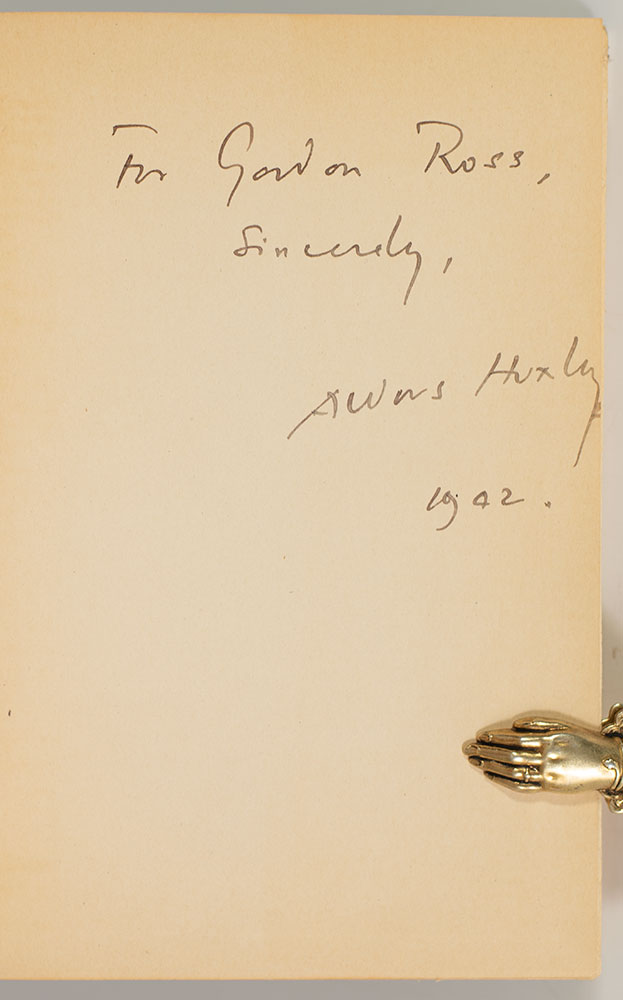 For Gordon Ross,
Sincerely,
Aldous Huxley
1942.